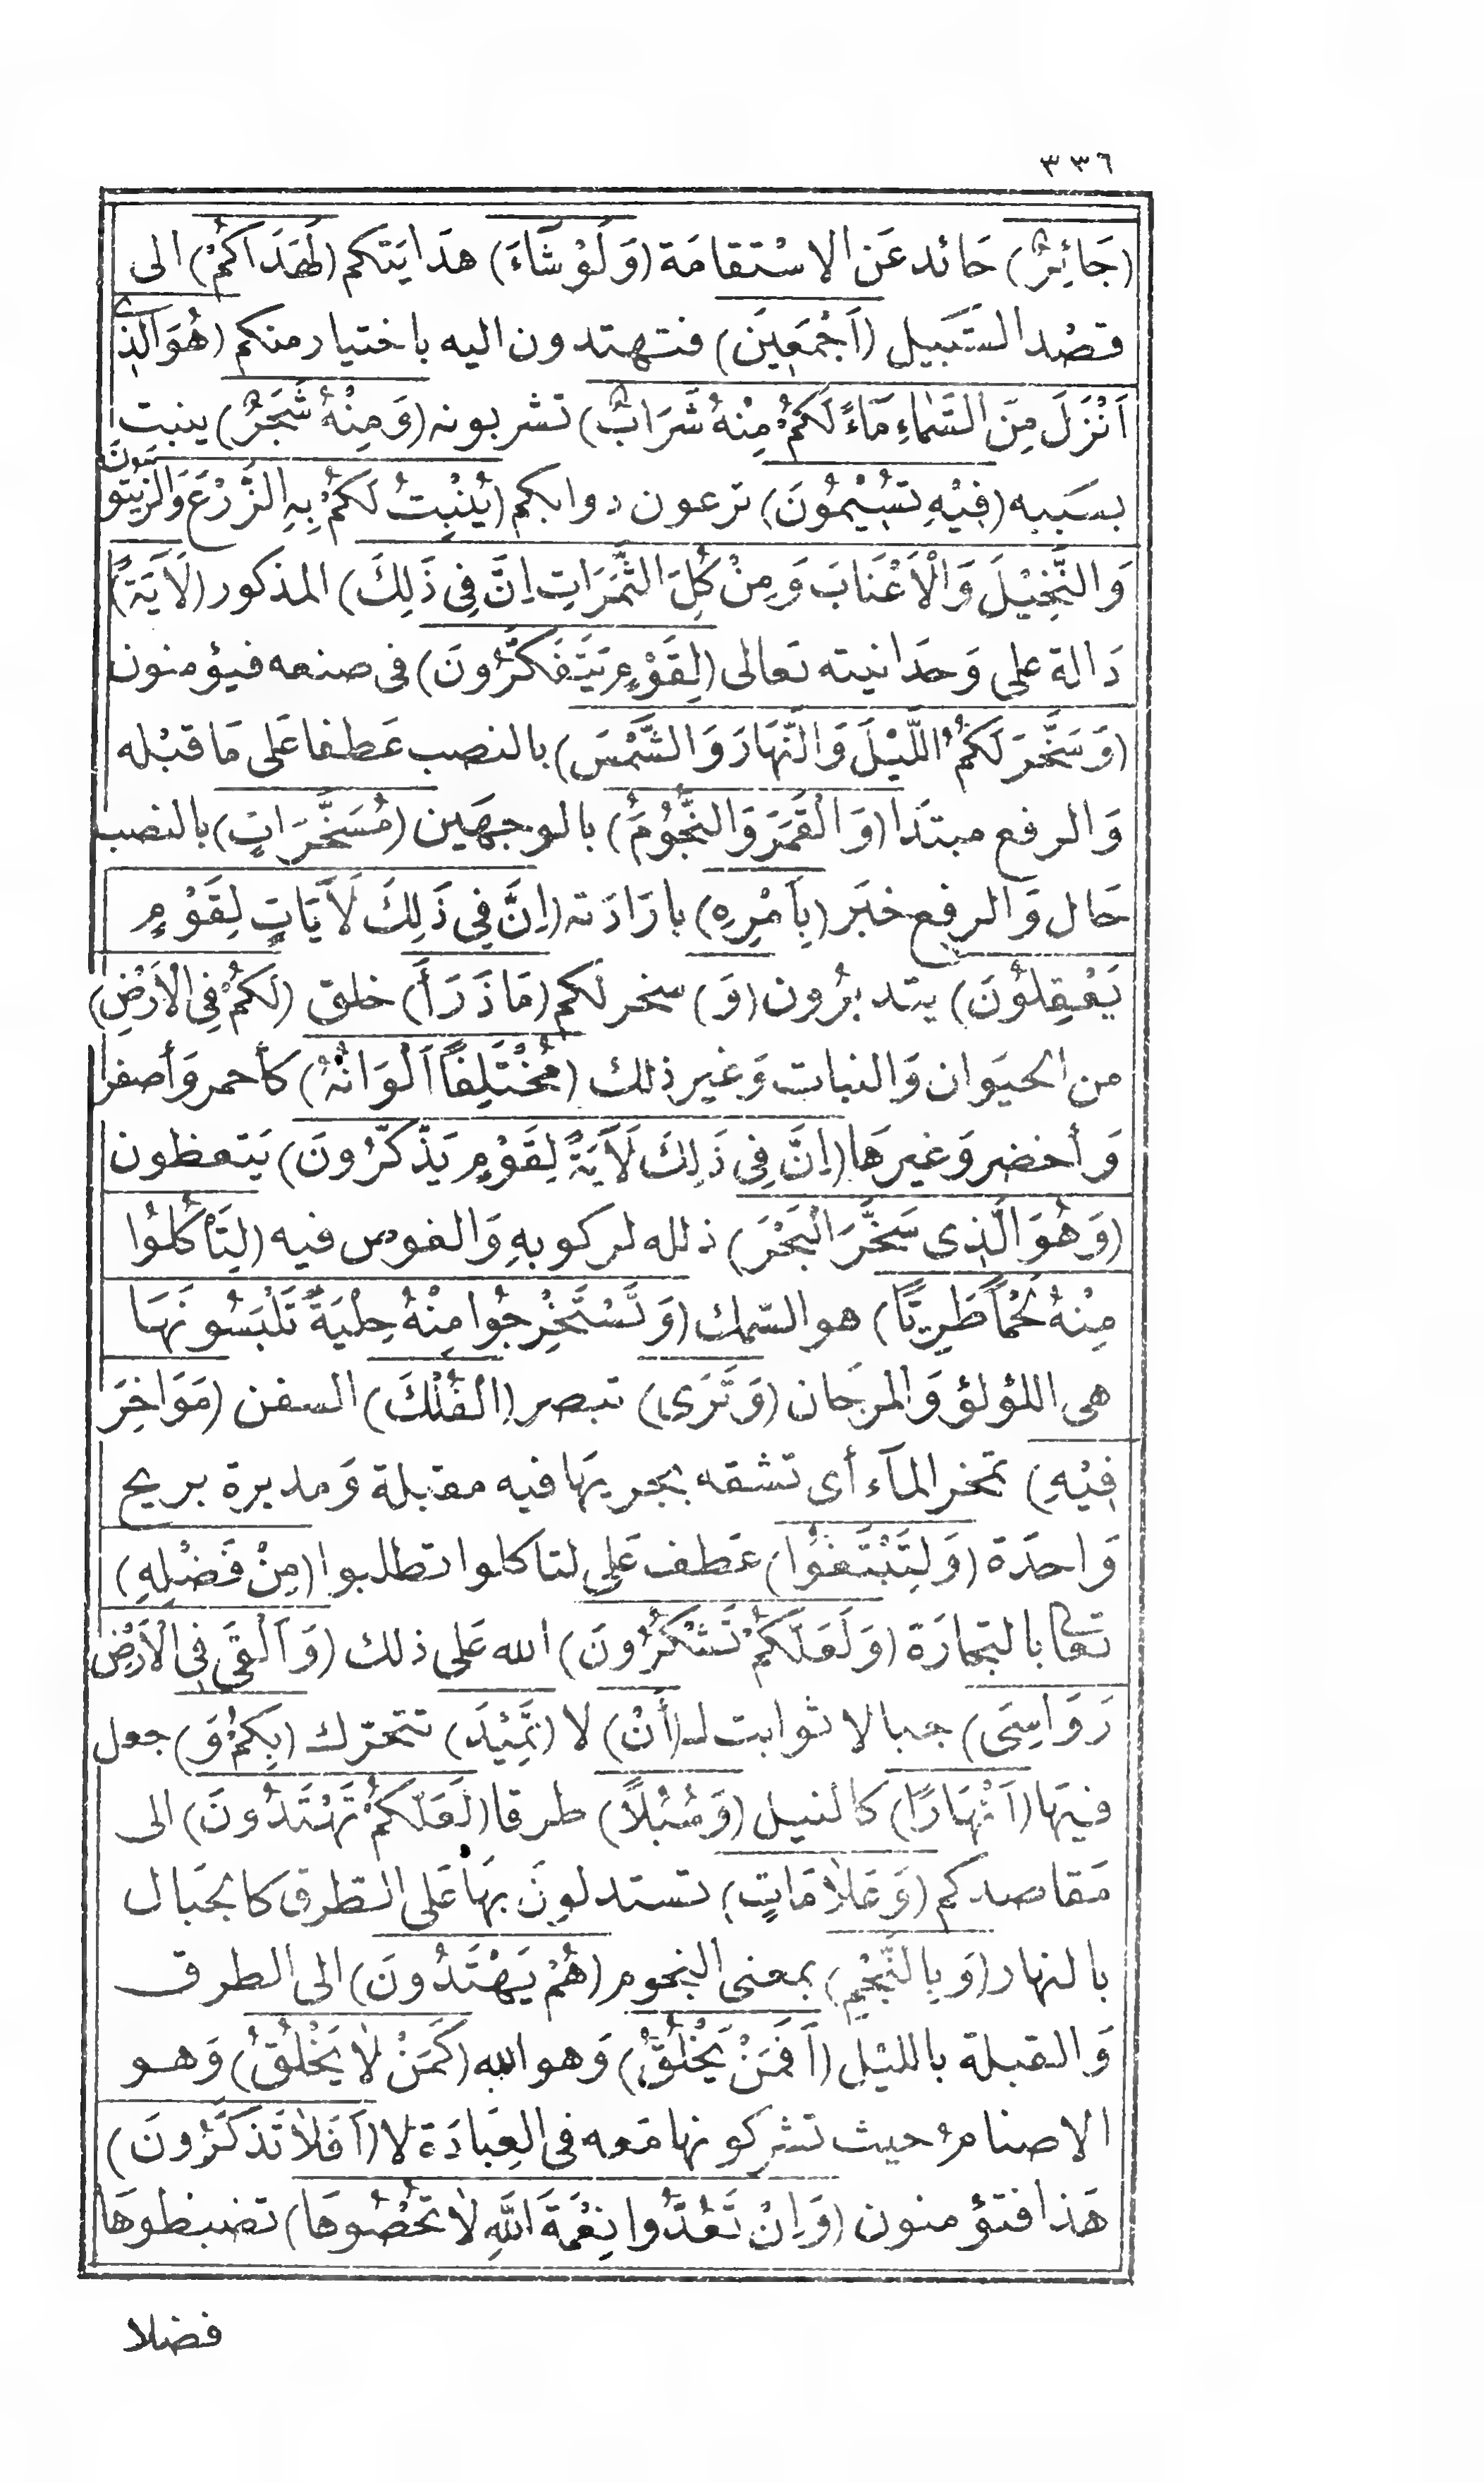 ٣٣٦
(جَائِرٌ) حَائد عَن الاسْتقامَة (وَلَوْشَآءَ) هدَايَتكم (لَهَدَاكُمْ) الى
قصْد السَّبَيل (اَجْمَعِيَن) فتهتدون اليه باختيار منكم (هُوَالَّذِى
اَنْزَلَ مِنَ السَّمَاءِ مَآءً لَكُمْ مِنْهُ شَرَابٌ) تشربونه (وَمِنْهُ شَجَرٌ) ينبت
بسَببه (فِيْهِ تسُيْمُونَ) ترعون دوابكم (يُنْبِتُ لَكُمْ بِهِ الزَّرْعَ وَالزَّيْتُونَ
وَالنَّخِيْلَ وَالْاَعْنَابَ وَمِنْ كُلِّ الثَّمَرَاتِ اِنَّ فِى ذَلِكَ) المذكور (لَاَيَةً)
دَالة على وَحدَانيته تعَالى (لِقَوْمٍ يَتَفَكَّرُونَ) فى صنعه فيؤمنون
(وَسَخَّرَ لَكُمُ اللَّيْلَ وَالنَّهَارَ وَالشَّمْسَ) بالنصب عَطفا عَلى مَا قبْله
وَالرفع مبتدَا (وَالْقَمَرَ وَالنُّجُوُمَُ) بالوجهَين (مُسَخَّرَاتٍ) بالنصب
حَال وَالرفع خبَر (بِاَمْرِهِ) بارَادَته (اِنَّ فِي ذَلِكَ لَاَيَاتٍ لِقَوْمٍ
يَعْقِلُونَ) يتدبرُون (وَ) سخر لكم (مَا ذَرَأَ) خلق (لَكُمْ فِى الْاَرْضِ)
من الحيَوان وَالنبات وَغير ذلك (مُخْتَلِفًا اَلْوَانُهُ) كأحمر وَأصفر
وَأخضر وَغيرهَا (اِنَّ فِى ذَلِكَ لَاَيَةً لِقَوْمٍ يَذَّكَّرُونَ) يَتعظون
(وَهُوَ الَّذِى سَخَّرَ الْبَحْرَ) ذلله لركوبهِ وَالغوص فيه (لِتَأْكُلُوُا
مِنْهُ لَحْمًا طَرِيًّا) هو السّمك (وَتَسْتَخْرِجُوا مِنْهُ حِلْيَةً تَلْبَسُونَهَا
هى اللؤلؤ وَالمرجَان (وَتَرَى) تبصر (الْفُلْكَ) السفن (مَوَاخِرَ
فِيْهِ) تمخر المآء أى تشقه بجريهَا فيه مقبلة وَمدبرة بريح
وَاحدَة (وَلِتَبْتَغُوْا) عَطف عَلى لتاكلوا تطلبوا (مِنْ فَضْلِهِ)
تعَا بالتجارَة (وَلَعَلَّكُمْ تَشْكُرُونَ) الله عَلى ذلك (وَاَلْقَى فِى الْاَرْضِ
رَوَاسِىَ) جبالا ثوابت لـ(أَنْ) لا (تَمِيْدَ) تتحرّك (بِكُمْ وَ) جعل
فيهَا (اَنْهَارًا) كالنيل (وَسُبُلًا) طرقا (لَعَلَّكُمْ تَهْتَدُونَ) الى
مَقاصدكم (وَعَلَامَاتٍ) تستدلونَ بهَا عَلى الطرق كالجبَال
بالنهار (وَبِالنَّجْمِ) بمعنى النجوم (هُمْ يَهْتَدُونَ) الى الطرق
وَالقبلة بالليْل (اَفَمَنْ يَخْلُقُ) وَهو الله (كَمَنْ لَا يَخْلُقُ) وَهـو
الاصنامُ حيث تشركونها مَعه فى العِبَادَة لا (اَفَلَا تَذَكَّرُونَ)
هَذا فتؤمنون (وَاِنْ تَعُدُّوا نِعْمَةَ اللَّهِ لَا تُحْصُوهَا) تضبطوهَا
فضلا